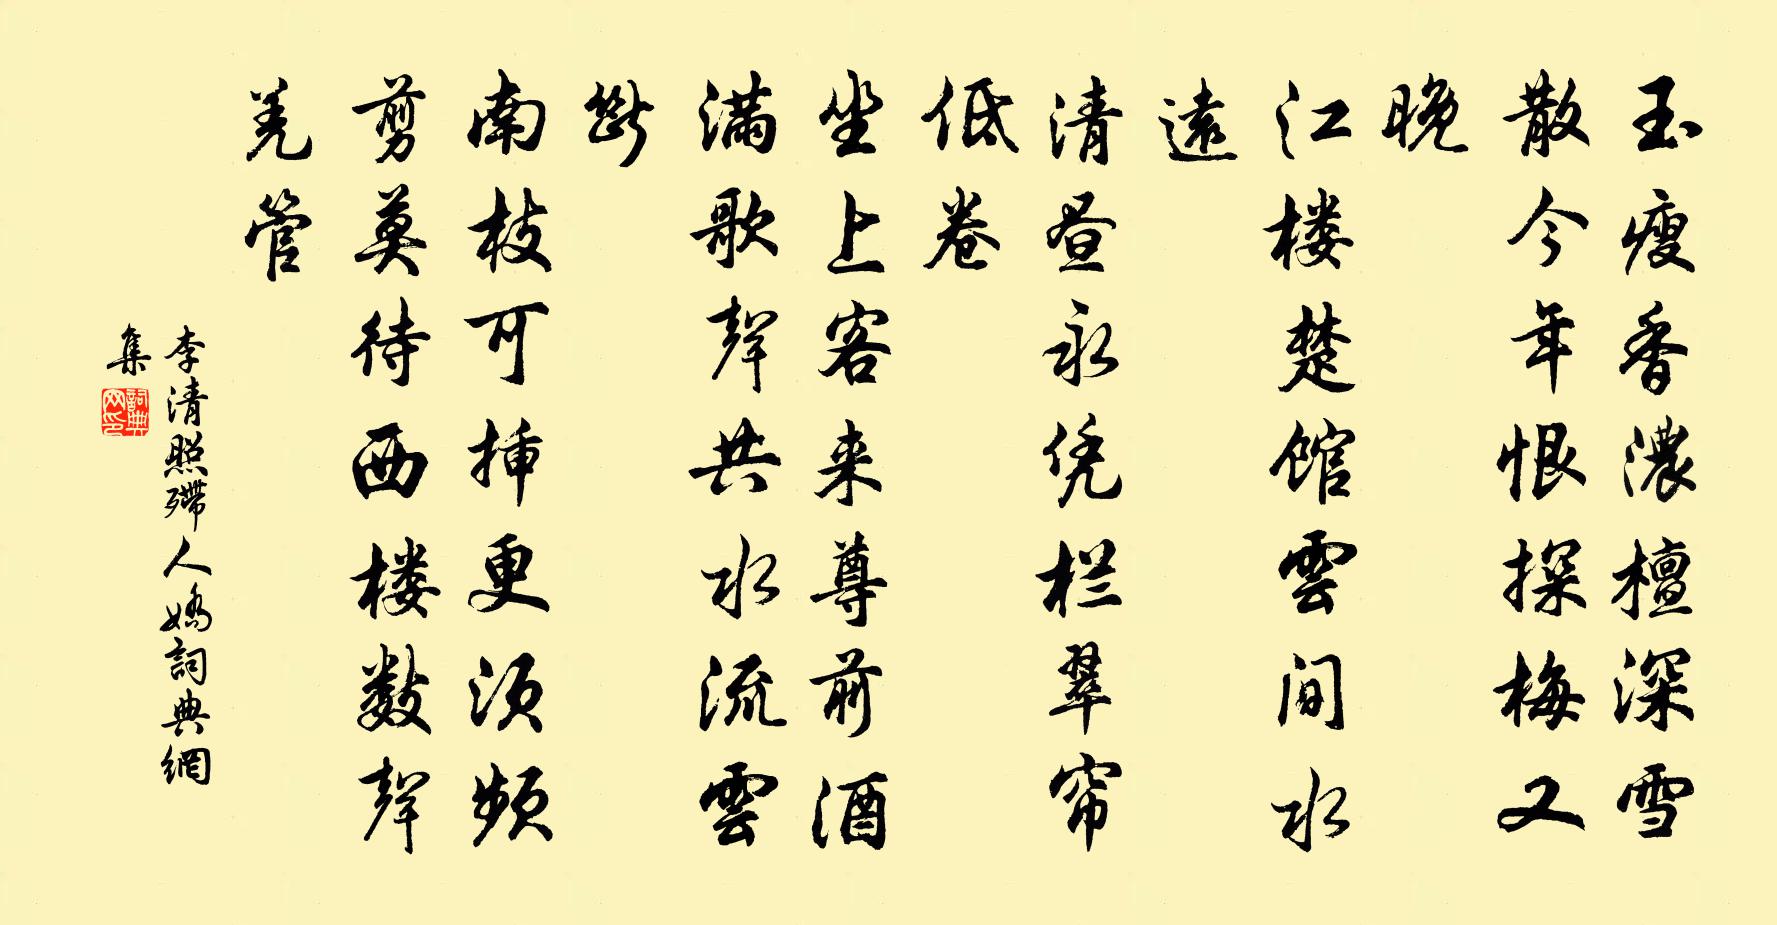 玉瘦香濃檀深雪
散今年恨探梅又
晚
江楼楚館雲间水
遠
清昼永凭栏翠帘
低卷
坐上客来尊前酒
满歌聲共水流雲
斷
南枝可插更须频
剪莫待西楼数聲
羌管
李清照殢人嬌詞典網
集
詞典網印